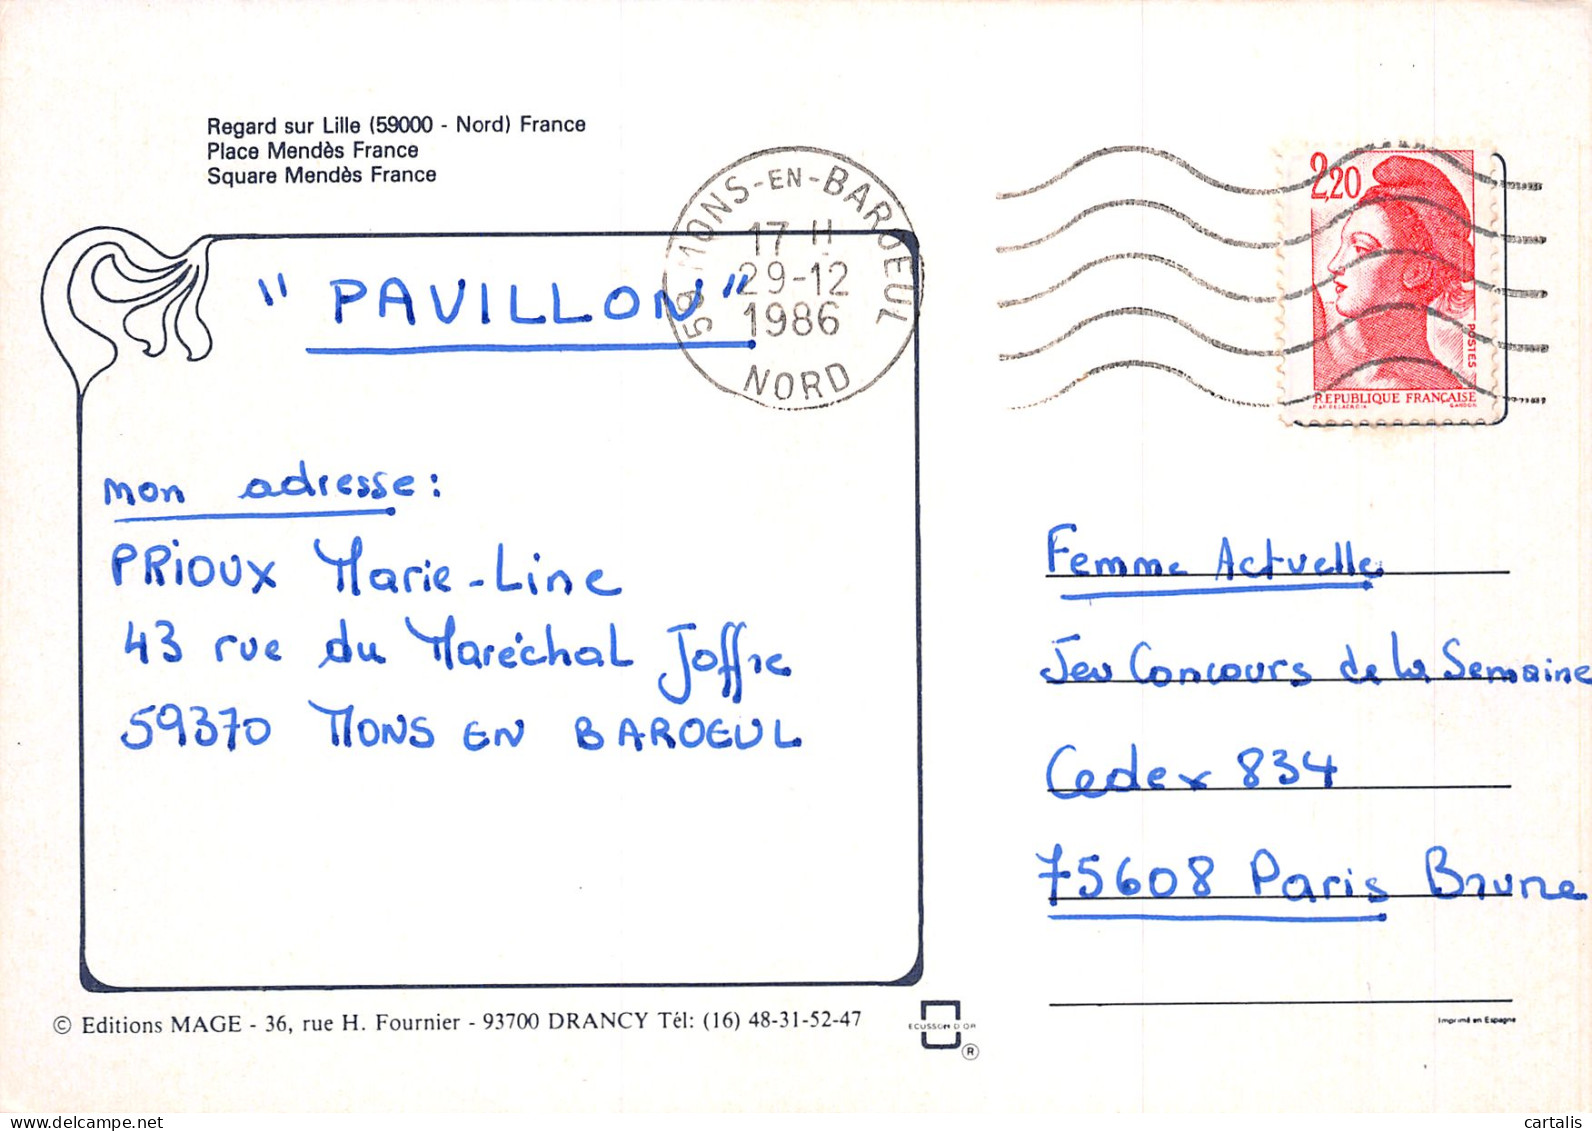 Regard sur Lille (59000 - Nord) France
Place Mendès France
Square Mendès France
59 MONS-EN-BAROEUL
17 H
29-12
1986
NORD
2,20
POSTES
REPUBLIQUE FRANÇAISE
"PAVILLON"
mon adresse:
PRIOUX Marie-Line
43 rue du Maréchal Joffre
59370 MONS EN BAROEUL
Femme Actuelle
Jeu Concours de la Semaine
Cedex 834
75608 Paris Brune
© Editions MAGE - 36, rue H. Fournier - 93700 DRANCY Tél: (16) 48-31-52-47
ECUSSON D'OR
®
Imprimé en Espagne
www.delcampe.net
cartalis